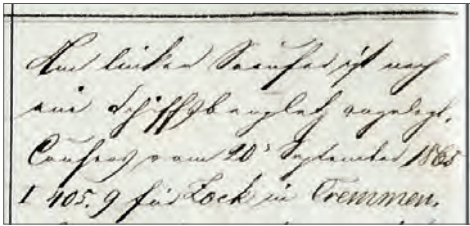 Am linken Seeufer ist noch
ein Schiffsbauplatz angelegt.
Consens vom 20ᵗ September 1865
I 405.9 für Zock in Tremmen.